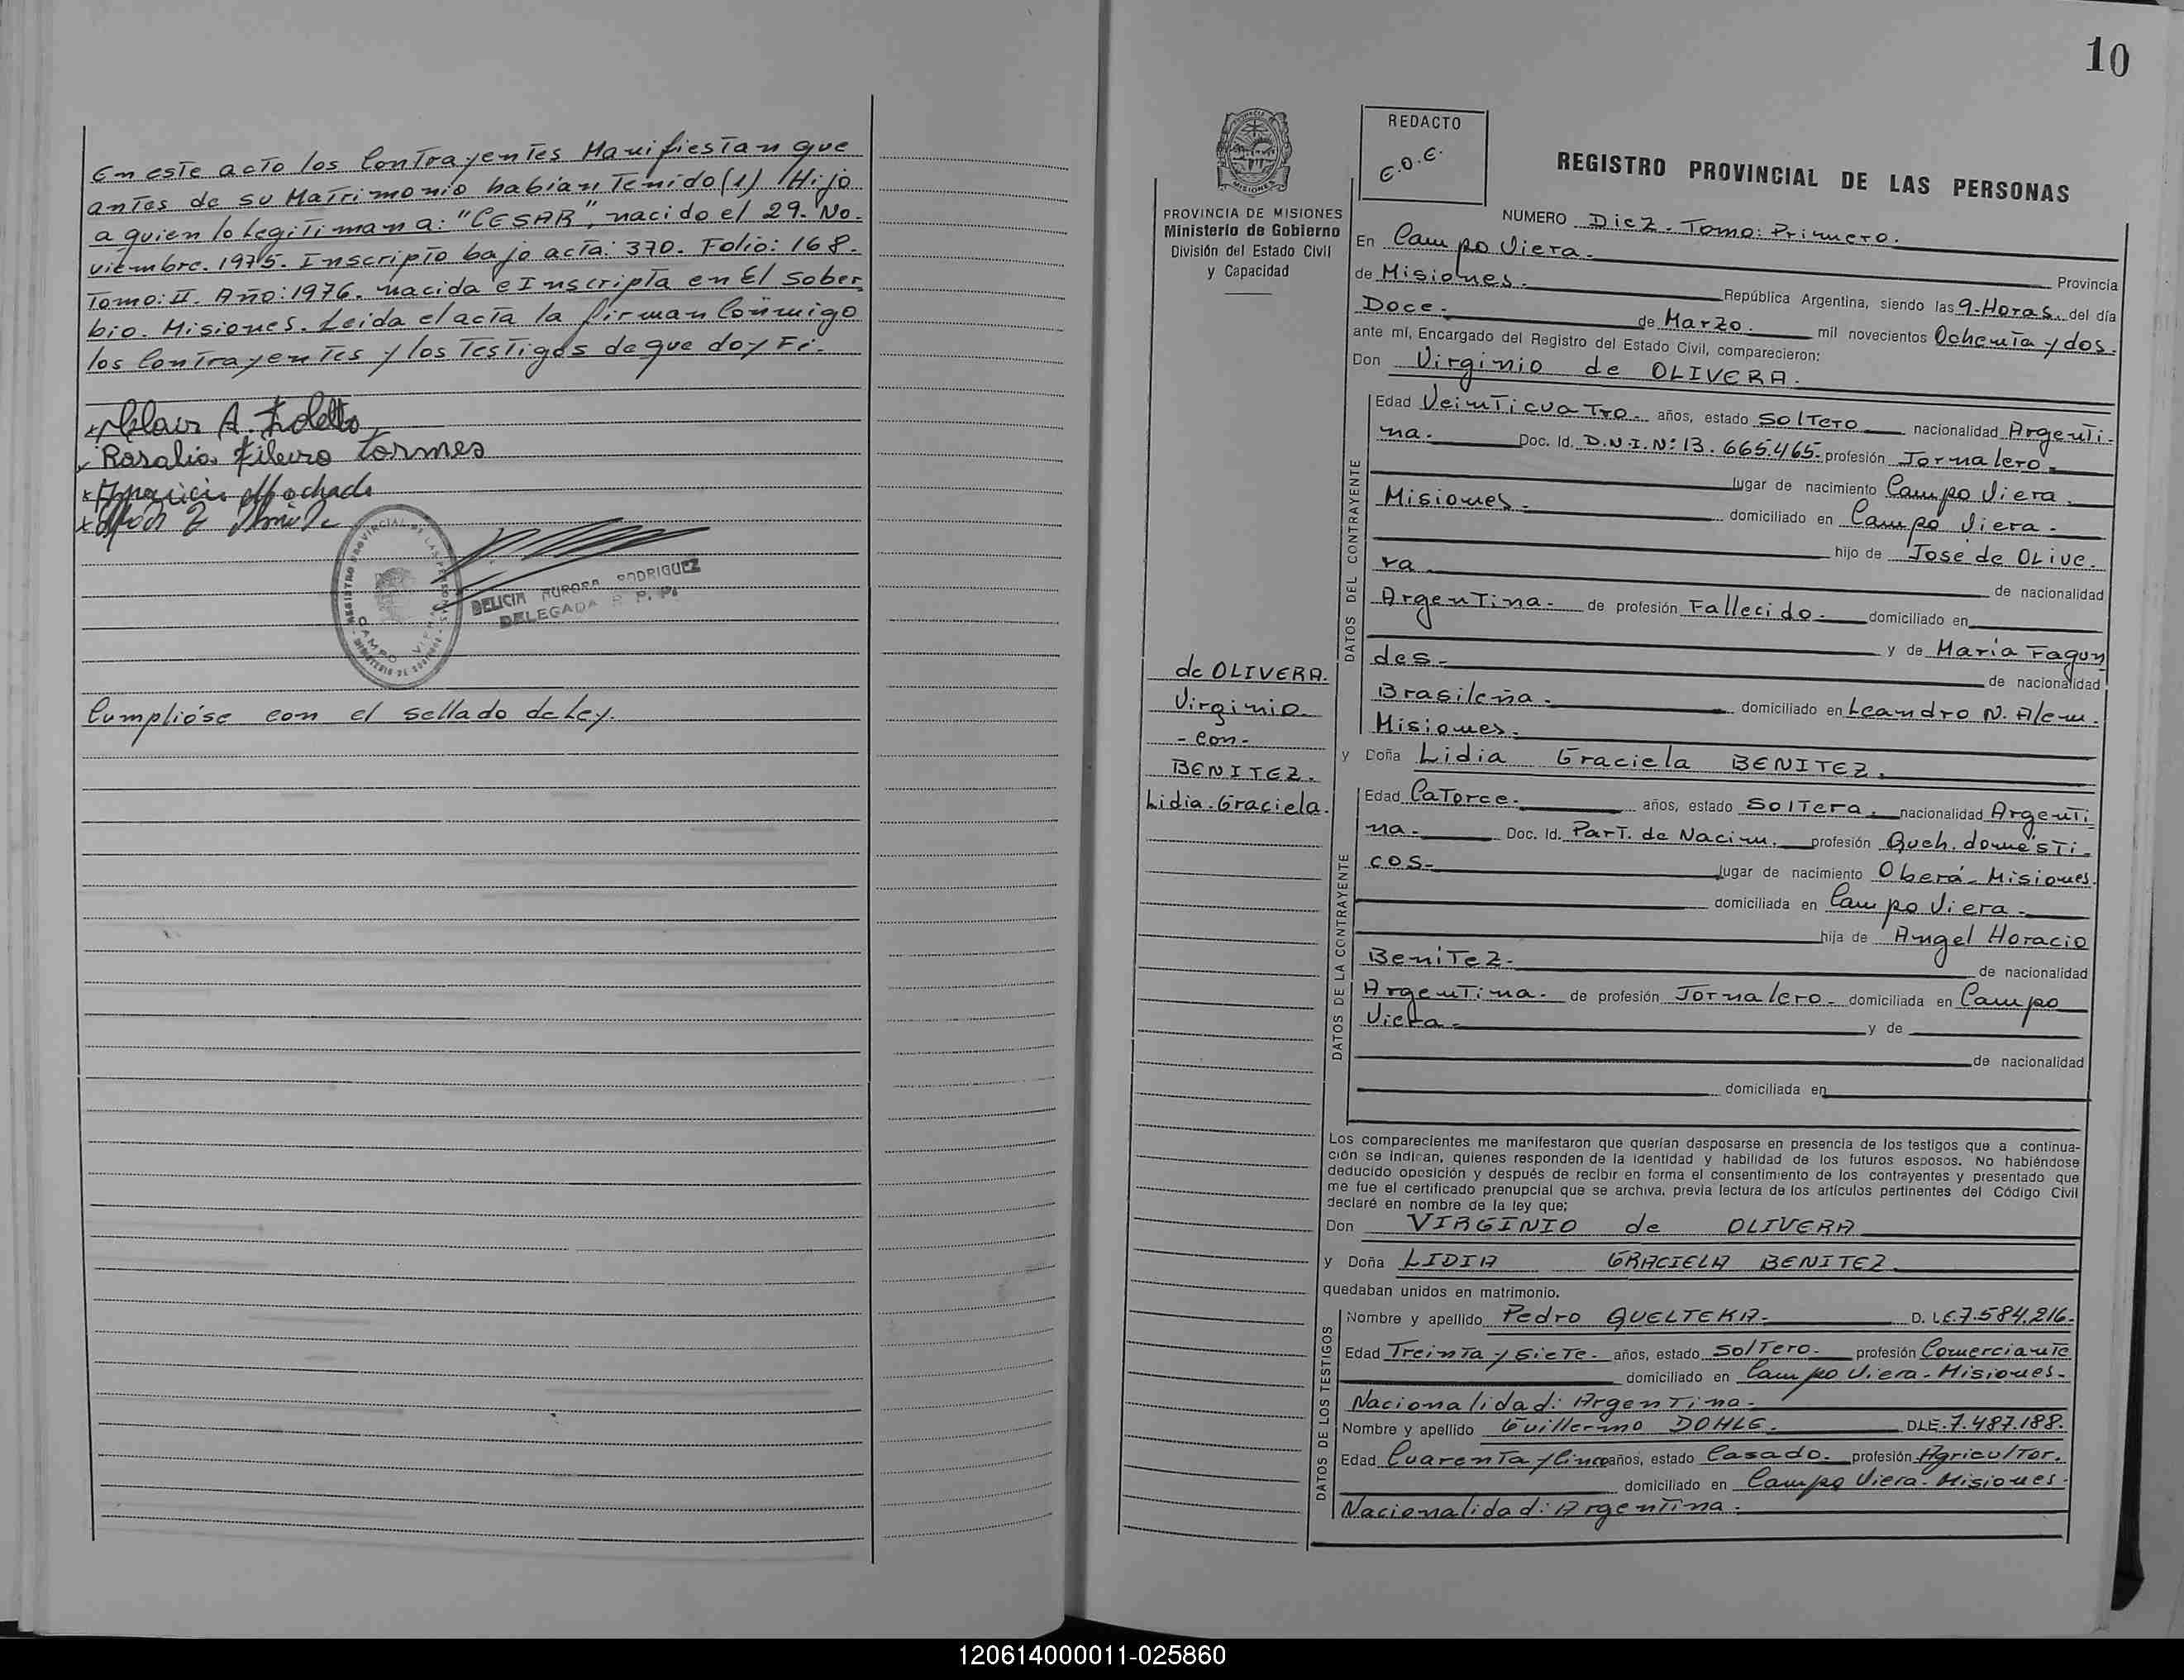 En este acto los Contrayentes Manifiestan que
antes de su Matrimonio habian Tenido (1) Hijo
a quien lo Legitiman a: "CESAR", nacido el 29. No.
viembre. 1975. Inscripto bajo acta: 370. Folio: 168.
Tomo: II. Año: 1976. nacida e Inscripta en El Sober
bio. Misiones. Leida el acta la firman Conmigo
los Contrayentes y los Testigos de que doy Fé.
A.
Rosalia Ribeiro Tormes
Machado
REGISTRO PROVINCIAL DE LAS PERSONAS
CAMPO VIERA
DELICIA AURORA RODRIGUEZ
DELEGADA R. P. P.
Cumplióse con el sellado de Ley.
10
REDACTO
E.O.E.
MISIONES
PROVINCIA DE MISIONES
Ministerio de Gobierno
División del Estado Civil
y Capacidad
REGISTRO PROVINCIAL DE LAS PERSONAS
NUMERO Diez. Tomo: Primero.
En Campo Viera. Provincia
de Misiones. República Argentina, siendo las 9-Horas. del día
Doce. de Marzo. mil novecientos Ochenta y dos.
ante mí, Encargado del Registro del Estado Civil, comparecieron:
Don Virginio de OLIVERA.
DATOS DEL CONTRAYENTE
Edad Veinticuatro. años, estado Soltero nacionalidad Argenti-
na. Doc. Id. D.N.I. N: 13.665.465. profesión Jornalero.
lugar de nacimiento Campo Viera.
Misiones. domiciliado en Campo Viera.
hijo de José de OLive.
ra. de nacionalidad
Argentina. de profesión Fallecido. domiciliado en
y de María Fagun
des. de nacionalidad
Brasileña. domiciliado en Leandro N. Alem.
Misiones.
de OLIVERA.
Virginio
-con-
BENITEZ.
Lidia Graciela.
y Doña Lidia Graciela BENITEZ.
DATOS DE LA CONTRAYENTE
Edad Catorce. años, estado Soltera. nacionalidad Argenti
na. Doc. Id. Part. de Nacim. profesión Queh. domésti-
cos. lugar de nacimiento Oberá-Misiones.
domiciliada en Campo Viera.
hija de Angel Horacio
Benitez. de nacionalidad
Argentina. de profesión Jornalero. domiciliada en Campo
Viera. y de
de nacionalidad
domiciliada en
Los comparecientes me manifestaron que querían desposarse en presencia de los testigos que a continua-
ción se indican, quienes responden de la identidad y habilidad de los futuros esposos. No habiéndose
deducido oposición y después de recibir en forma el consentimiento de los contrayentes y presentado que
me fue el certificado prenupcial que se archiva, previa lectura de los artículos pertinentes del Código Civil
declaré en nombre de la ley que:
Don VIRGINIO de OLIVERA
y Doña LIDIA GRACIELA BENITEZ
quedaban unidos en matrimonio.
DATOS DE LOS TESTIGOS
Nombre y apellido Pedro QUELTEKA. D. LE.7.584.216.
Edad Treinta y Siete. años, estado Soltero. profesión Comerciante
domiciliado en Campo Viera-Misiones.
Nacionalidad: Argentina.
Nombre y apellido Guillermo DOHLE. DLE.7.487.188.
Edad Cuarenta y Cinco años, estado Casado. profesión Agricultor.
domiciliado en Campo Viera-Misiones.
Nacionalidad: Argentina.
120614000011-025860